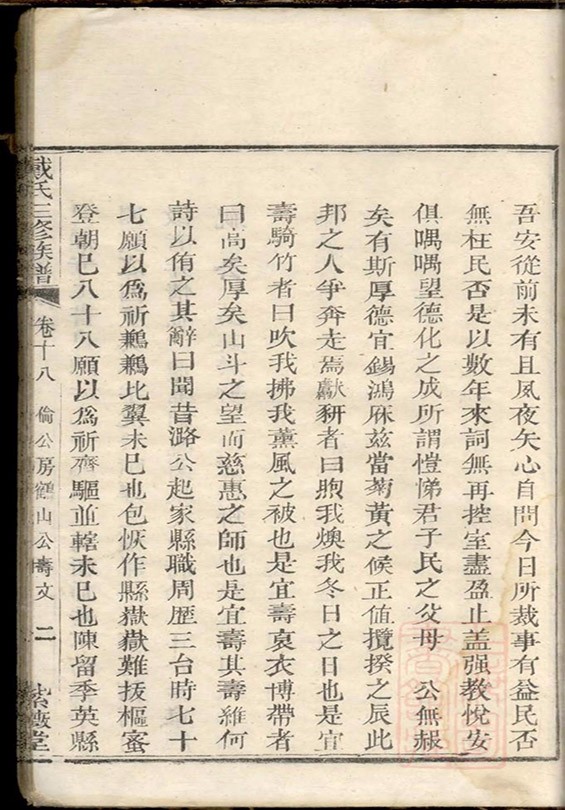 吾安從前未有且夙夜矢心自問今日所裁事有益民否
無枉民否是以數年來詞無再控室盡盈止盖强教悅安
俱喁喁望德化之成所謂愷悌君子民之父母　公無赧
矣有斯厚德宜錫鴻庥茲當菊黃之候正値攬揆之辰此
邦之人爭奔走焉獻豣者曰煦我燠我冬日之日也是宜
壽騎竹者曰吹我拂我薰風之被也是宜壽裒衣博帶者
曰高矣厚矣山斗之望而慈惠之師也是宜壽其壽維何
詩以侑之其辭曰聞昔潞公起家縣職周歷三台時七十
七願以爲祈鶼鶼比翼未巳也包恢作縣嶽嶽難拔樞密
登朝巳八十八願以爲祈齊驅並轄未巳也陳留季英縣
戴氏三修族譜　卷十八　倫公房鶴山公壽文　二　紫薇堂